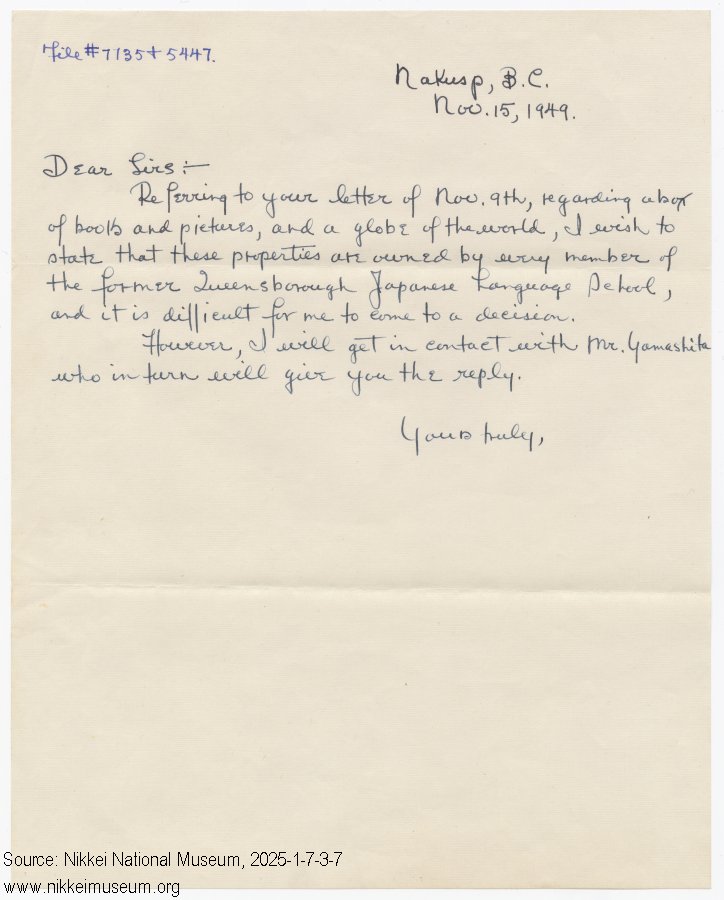 File #7135 + 5447.
Nakusp, B.C.
Nov. 15, 1949.
Dear Sirs:—
Referring to your letter of Nov. 9th, regarding a box
of books and pictures, and a globe of the world, I wish to
state that these properties are owned by every member of
the former Queensborough Japanese Language School,
and it is difficult for me to come to a decision.
However, I will get in contact with Mr. Yamashita
who in turn will give you the reply.
Yours truly,
Source: Nikkei National Museum, 2025-1-7-3-7
www.nikkeimuseum.org